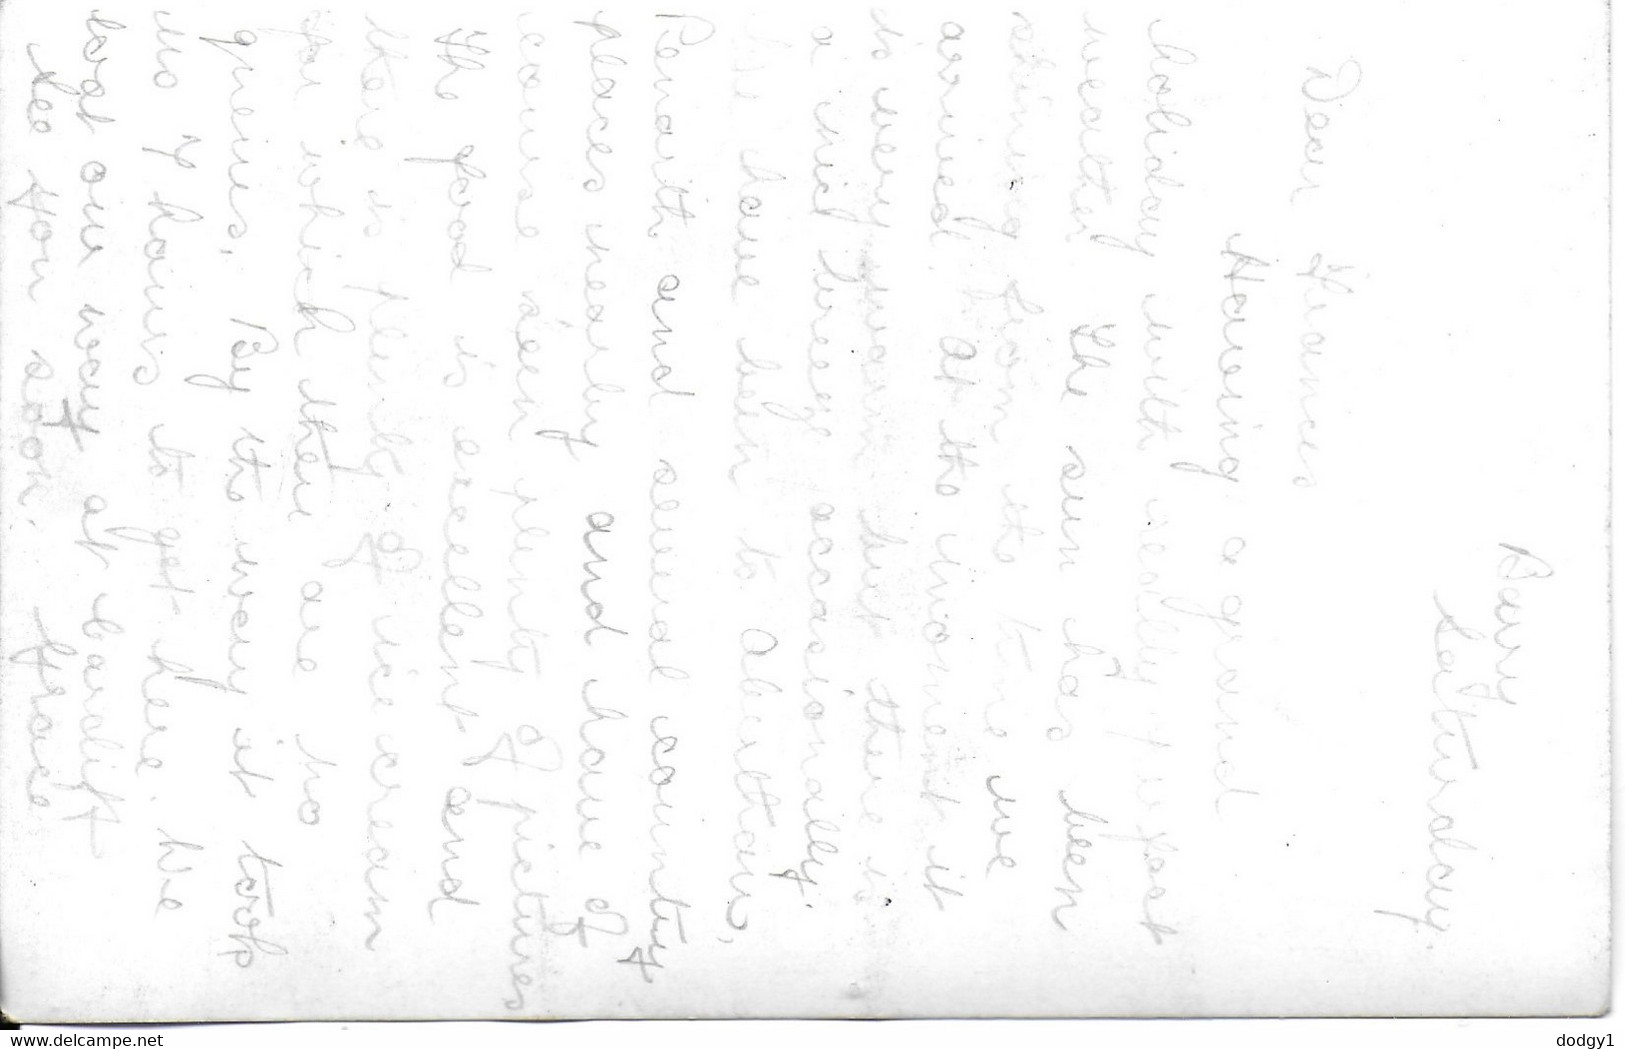 Barry
Saturday.
Dear Frances
Having a grand
holiday with really perfect
weather. The sun has been
shining from the time we
arrived. At the moment it
is very warm but there is
a nice breeze occasionally.
We have been to Aberthaw,
Penarth and several country
places nearby and have of
course seen plenty of pictures
The food is excellent and
there is plenty of ice cream
for which there are no
queues. By the way it took
us 7 hours to get here. We
lost our way at Cardiff
See you soon. Grace
www.delcampe.net
dodgy1